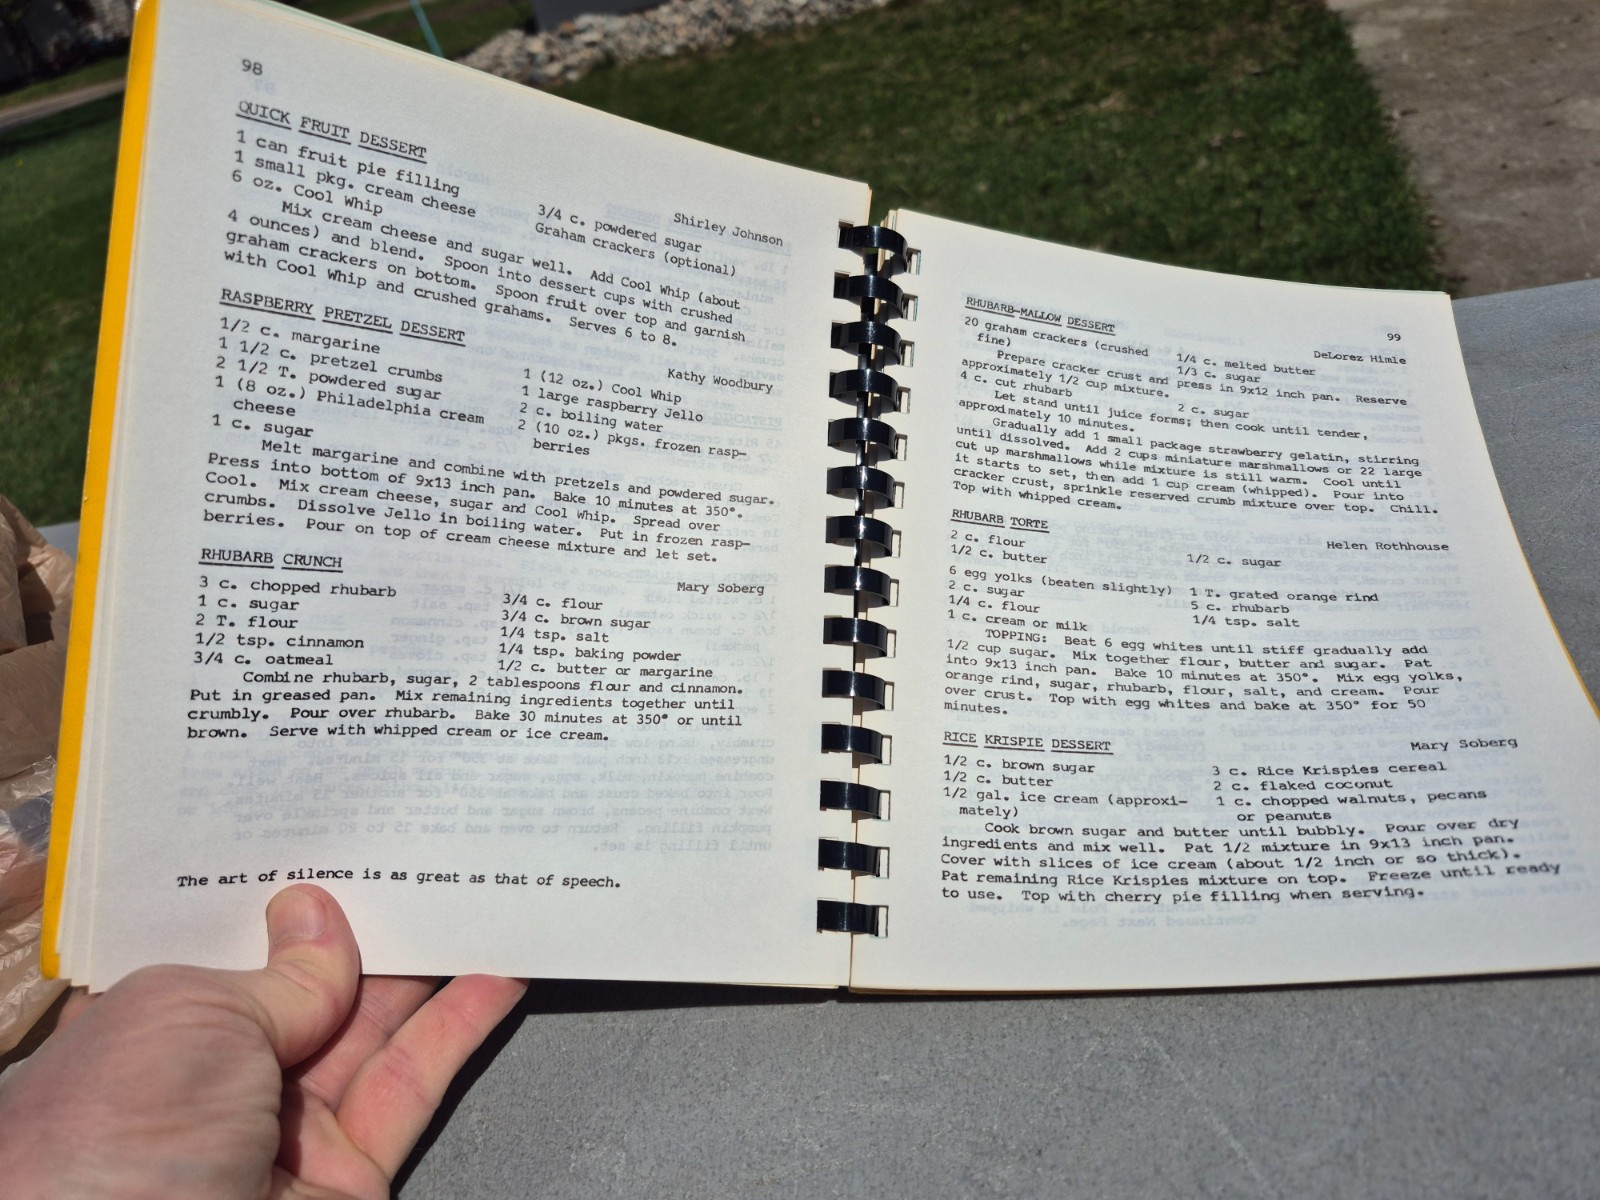 98
QUICK FRUIT DESSERT
Shirley Johnson
1 can fruit pie filling
1 small pkg. cream cheese
6 oz. Cool Whip
3/4 c. powdered sugar
Graham crackers (optional)
Mix cream cheese and sugar well. Add Cool Whip (about
4 ounces) and blend. Spoon into dessert cups with crushed
graham crackers on bottom. Spoon fruit over top and garnish
with Cool Whip and crushed grahams. Serves 6 to 8.
RASPBERRY PRETZEL DESSERT
Kathy Woodbury
1/2 c. margarine
1 1/2 c. pretzel crumbs
2 1/2 T. powdered sugar
1 (8 oz.) Philadelphia cream
cheese
1 c. sugar
1 (12 oz.) Cool Whip
1 large raspberry Jello
2 c. boiling water
2 (10 oz.) pkgs. frozen rasp-
berries
Melt margarine and combine with pretzels and powdered sugar.
Press into bottom of 9x13 inch pan. Bake 10 minutes at 350°.
Cool. Mix cream cheese, sugar and Cool Whip. Spread over
crumbs. Dissolve Jello in boiling water. Put in frozen rasp-
berries. Pour on top of cream cheese mixture and let set.
RHUBARB CRUNCH
Mary Soberg
3 c. chopped rhubarb
1 c. sugar
2 T. flour
1/2 tsp. cinnamon
3/4 c. oatmeal
3/4 c. flour
3/4 c. brown sugar
1/4 tsp. salt
1/4 tsp. baking powder
1/2 c. butter or margarine
Combine rhubarb, sugar, 2 tablespoons flour and cinnamon.
Put in greased pan. Mix remaining ingredients together until
crumbly. Pour over rhubarb. Bake 30 minutes at 350° or until
brown. Serve with whipped cream or ice cream.
The art of silence is as great as that of speech.
99
RHUBARB-MALLOW DESSERT
DeLorez Himle
20 graham crackers (crushed
fine)
1/4 c. melted butter
1/3 c. sugar
Prepare cracker crust and press in 9x12 inch pan. Reserve
approximately 1/2 cup mixture.
4 c. cut rhubarb
2 c. sugar
Let stand until juice forms; then cook until tender,
approximately 10 minutes.
Gradually add 1 small package strawberry gelatin, stirring
until dissolved. Add 2 cups miniature marshmallows or 22 large
cut up marshmallows while mixture is still warm. Cool until
it starts to set, then add 1 cup cream (whipped). Pour into
cracker crust, sprinkle reserved crumb mixture over top. Chill.
Top with whipped cream.
RHUBARB TORTE
Helen Rothhouse
2 c. flour
1/2 c. butter
1/2 c. sugar
6 egg yolks (beaten slightly)
2 c. sugar
1/4 c. flour
1 c. cream or milk
1 T. grated orange rind
5 c. rhubarb
1/4 tsp. salt
TOPPING: Beat 6 egg whites until stiff gradually add
1/2 cup sugar. Mix together flour, butter and sugar. Pat
into 9x13 inch pan. Bake 10 minutes at 350°. Mix egg yolks,
orange rind, sugar, rhubarb, flour, salt, and cream. Pour
over crust. Top with egg whites and bake at 350° for 50
minutes.
RICE KRISPIE DESSERT
Mary Soberg
1/2 c. brown sugar
1/2 c. butter
1/2 gal. ice cream (approxi-
mately)
3 c. Rice Krispies cereal
2 c. flaked coconut
1 c. chopped walnuts, pecans
or peanuts
Cook brown sugar and butter until bubbly. Pour over dry
ingredients and mix well. Pat 1/2 mixture in 9x13 inch pan.
Cover with slices of ice cream (about 1/2 inch or so thick).
Pat remaining Rice Krispies mixture on top. Freeze until ready
to use. Top with cherry pie filling when serving.